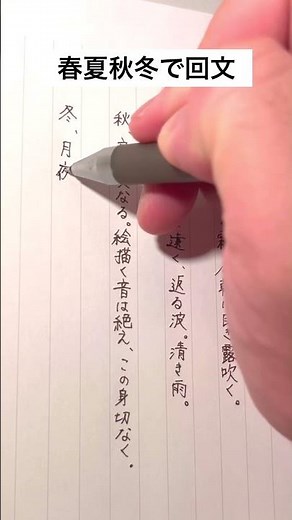 春夏秋冬で回文
露吹く。
遠く、返る波。清き雨。
秋、
なる。絵描く音は絶え、この身切なく。
冬、月夜